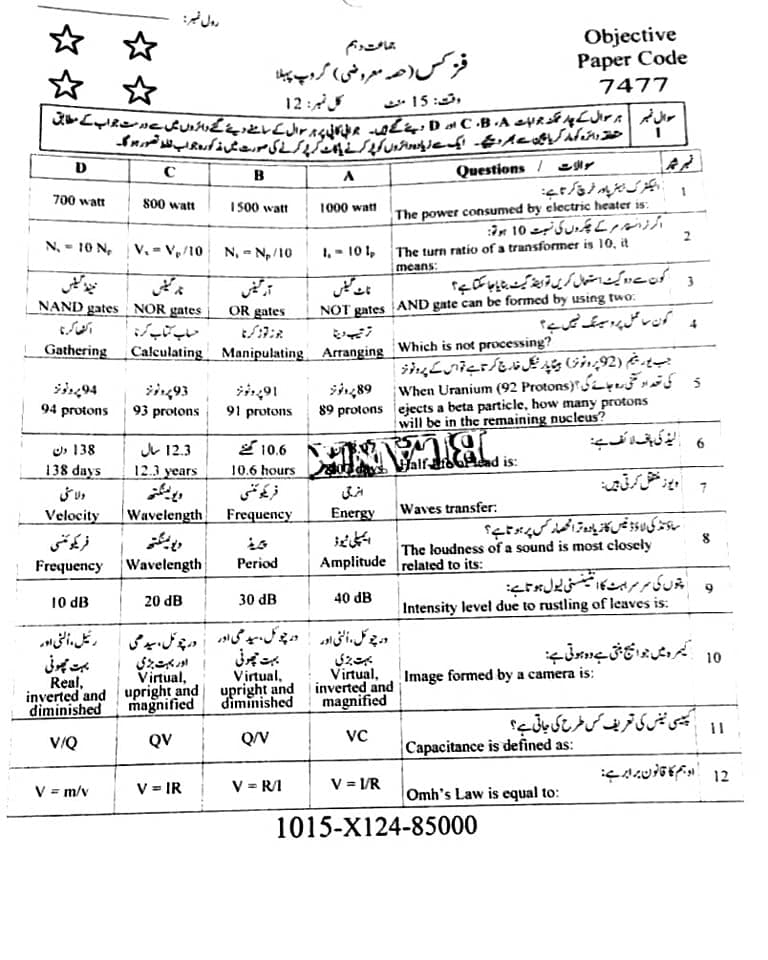 رول نمبر:
جماعت دہم
فزکس (حصہ معروضی) گروپ پہلا
وقت: 15 منٹ
کل نمبر: 12
Objective
Paper Code
7477
سوال نمبر 1
ہر سوال کے چار ممکنہ جوابات A، B، C اور D دیئے گئے ہیں۔ جوابی کاپی پر ہر سوال کے سامنے دیئے گئے دائروں میں سے درست جواب کے مطابق
متعلقہ دائرہ کو مارکر یا پین سے بھر دیجئے۔ ایک سے زیادہ دائروں کو پُر کرنے یا کاٹ کر پُر کرنے کی صورت میں مذکورہ جواب غلط تصور ہو گا۔
D C B A Questions / سوالات نمبر شمار
الیکٹرک ہیٹر پاور خرچ کرتا ہے: 1
700 watt 800 watt 1500 watt 1000 watt The power consumed by electric heater is:
اگر ٹرانسفارمر کے چکروں کی نسبت 10 ہو تو: 2
Nₛ = 10 Nₚ Vₛ = Vₚ/10 Nₛ = Nₚ/10 Iₛ = 10 Iₚ The turn ratio of a transformer is 10, it
means:
کون سے دو گیٹ استعمال کریں تو اینڈ گیٹ بنایا جا سکتا ہے؟ 3
نینڈ گیٹس نار گیٹس آر گیٹس ناٹ گیٹس
NAND gates NOR gates OR gates NOT gates AND gate can be formed by using two:
کون سا عمل پروسیسنگ نہیں ہے؟ 4
اکٹھا کرنا حساب کتاب کرنا جوڑ توڑ کرنا ترتیب دینا
Gathering Calculating Manipulating Arranging Which is not processing?
جب یورینیم (92 پروٹونز) بیٹا پارٹیکل خارج کرتا ہے تو اس کے پروٹونز
کی تعداد کتنی رہ جائے گی؟ 5
94 پروٹونز 93 پروٹونز 91 پروٹونز 89 پروٹونز When Uranium (92 Protons)
94 protons 93 protons 91 protons 89 protons ejects a beta particle, how many protons
will be in the remaining nucleus?
لیڈ کی ہاف لائف ہے: 6
138 دن 12.3 سال 10.6 گھنٹے
138 days 12.3 years 10.6 hours days. Half-life of lead is:
BLANK
ویوز منتقل کرتی ہیں: 7
ولاسٹی ویولینگتھ فریکوئنسی انرجی
Velocity Wavelength Frequency Energy Waves transfer:
ساؤنڈ کی لاؤڈنیس کا زیادہ تر انحصار کس پر ہوتا ہے؟ 8
فریکوئنسی ویولینگتھ پیریڈ ایمپلی ٹیوڈ
Frequency Wavelength Period Amplitude The loudness of a sound is most closely
related to its:
پتوں کی سرسراہٹ کا انٹینسٹی لیول ہوتا ہے: 9
10 dB 20 dB 30 dB 40 dB Intensity level due to rustling of leaves is:
کیمرہ میں جو امیج بنتی ہے وہ ہوتی ہے: 10
رئیل، اُلٹی اور بہت چھوٹی ورچوئل، سیدھی اور بہت بڑی ورچوئل، سیدھی اور بہت چھوٹی ورچوئل، اُلٹی اور بہت بڑی
Real, inverted and diminished Virtual, upright and magnified Virtual, upright and diminished Virtual, inverted and magnified Image formed by a camera is:
کپیسی ٹینس کی تعریف کس طرح کی جاتی ہے؟ 11
V/Q QV Q/V VC Capacitance is defined as:
اوہم کا قانون برابر ہے: 12
V = m/v V = IR V = R/I V = I/R Omh's Law is equal to:
1015-X124-85000